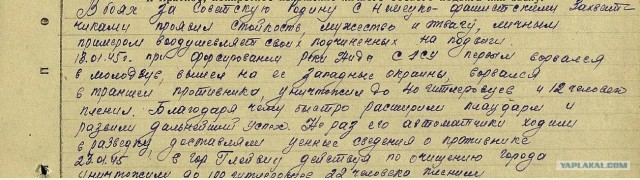 В боях за Советскую Родину с немецко-фашистскими захват-
чиками проявил стойкость, мужество и отвагу, личным
примером воодушевляет своих подчиненных на подвиги.
18.01.45г. при форсировании реки Нида с ЗСУ первым ворвался
в , вышел на ее западные окраины, ворвался
в траншеи противника, уничтожил до 40 гитлеровцев и 12 человек
пленил. Благодаря чему быстро расширили плацдарм и
развили дальнейший успех. Не раз его автоматчики ходили
в разведку, доставляли ценные сведения о противнике
27.01.45 в гор Глейвиц действуя по очищению города
уничтожили до 100 гитлеровцев 22 человека пленили
YAPLAKAL.COM